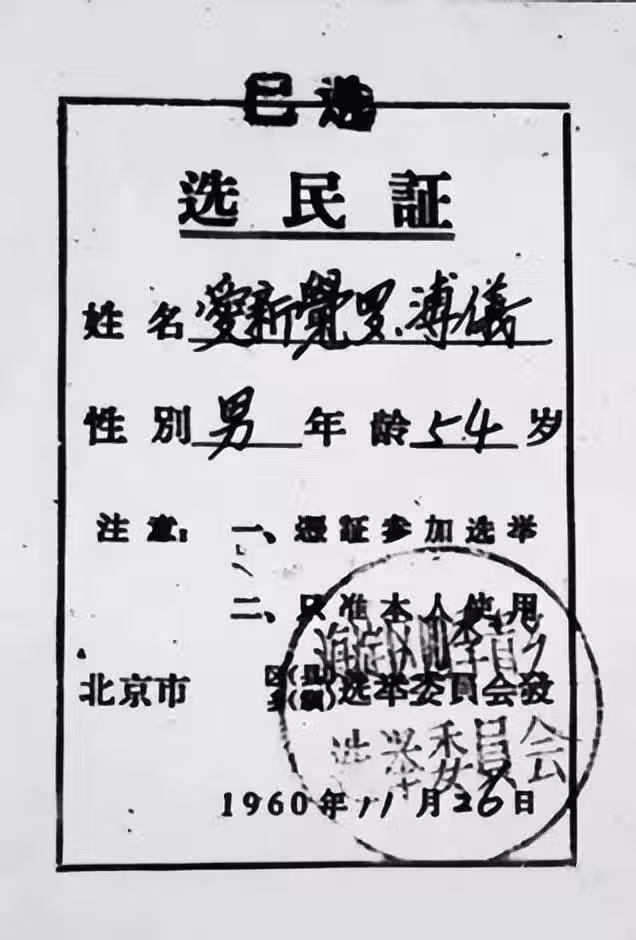 已选
选民証
姓名 愛新覺罗·溥儀
性别 男 年龄 54 岁
注意：一、憑証参加选举
二、只准本人使用
北京市 区(县)乡(镇)选举委員会发
选举委員会
1960年11月26日